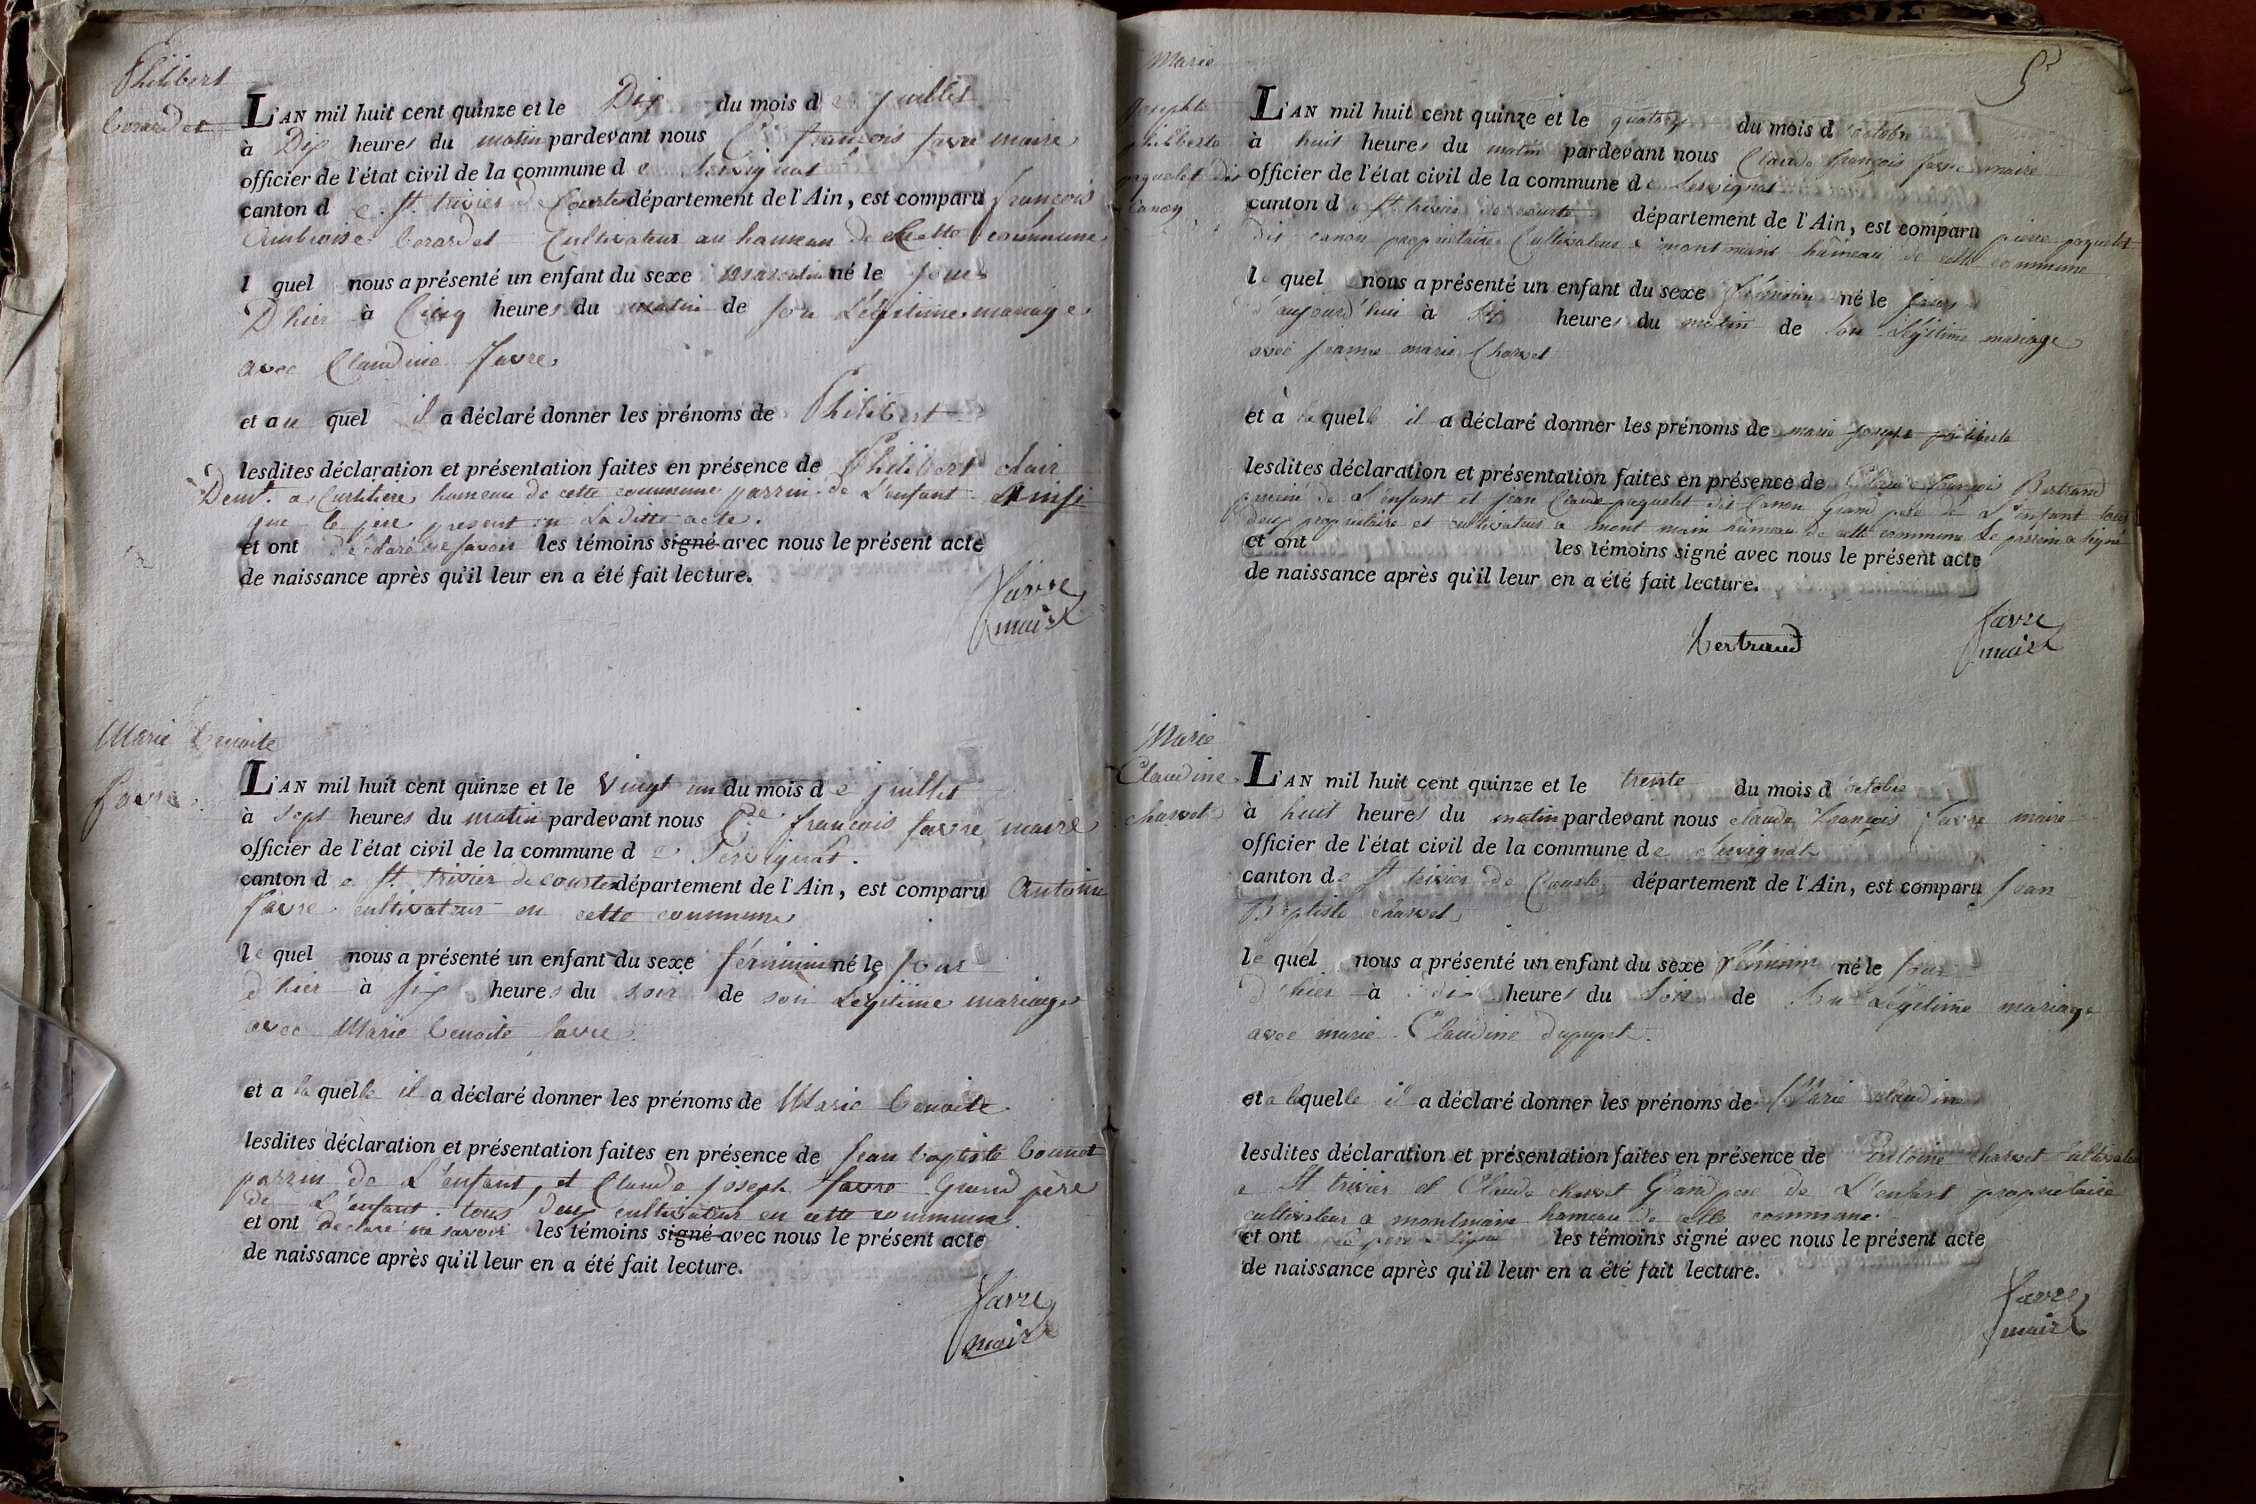 Philibert
Berardet
L'AN mil huit cent quinze et le Dix du mois de juillet
à Dix heures du matin pardevant nous Cde françois favre maire
officier de l'état civil de la commune de Servignat
canton de St. trivier de Courtes département de l'Ain, est comparu françois
Ambroise berardet Cultivateur au hameau de cette commune
l quel nous a présenté un enfant du sexe masculin né le jour
D'hier à Cinq heures du matin de son Légitime mariage
avec Claudine favre
et au quel il a déclaré donner les prénoms de Philibert
lesdites déclaration et présentation faites en présence de Philibert clair
Demt. a Curtilière hameau de cette commune parrin de L'enfant Ainsi
que le père present en La ditte acte.
et ont déclaré ne savoir les témoins signé avec nous le présent acte
de naissance après qu'il leur en a été fait lecture.
favre
maire
Marie benoite
favre
L'AN mil huit cent quinze et le vingt un du mois de juillet
à sept heures du matin pardevant nous Cde françois favre maire
officier de l'état civil de la commune de Servignat.
canton de St. trivier de courtes département de l'Ain, est comparu Antoine
favre cultivateur en cette commune
le quel nous a présenté un enfant du sexe féminin né le jour
d'hier à six heures du soir de son Légitime mariage
avec Marie benoite favre
et a la quelle il a déclaré donner les prénoms de Marie benoite
lesdites déclaration et présentation faites en présence de jean baptiste bonnet
parrin de L'enfant, et Claude joseph favre Grand père
de L'enfant. tous deux cultivateur en cette commune
et ont declaré ne savoir les témoins signé avec nous le présent acte
de naissance après qu'il leur en a été fait lecture.
favre
maire
5
Marie
josephte
philiberte
paquelet dit
Canon
L'AN mil huit cent quinze et le quatorze du mois d'octobre
à huit heures du matin pardevant nous Claude françois favre maire
officier de l'état civil de la commune de Servignat
canton de St trivier de courte département de l'Ain, est comparu pierre paquelet
dit canon propriétaire Cultivateur a montmain hameau de cette commune
le quel nous a présenté un enfant du sexe féminin né le jour
d'aujourd'hui à six heures du matin de son Légitime mariage
avec jeanne marie Charvet
et à la quelle il a déclaré donner les prénoms de marie josephe philiberte
lesdites déclaration et présentation faites en présence de Claude françois Bertrand
parrain de L'enfant et jean Claude paquelet dit Canon Grand père de L'enfant tous
deux propriétaire et cultivateur a mont main hameau de cette commune Le parrain a signé
et ont les témoins signé avec nous le présent acte
de naissance après qu'il leur en a été fait lecture.
bertrand
favre
maire
Marie
Claudine
charvet
L'AN mil huit cent quinze et le trente du mois d'octobre
à huit heures du matin pardevant nous claude françois favre maire
officier de l'état civil de la commune de Servignat
canton de St trivier de Courte département de l'Ain, est comparu jean
Baptiste charvet
le quel nous a présenté un enfant du sexe féminin né le jour
d'hier à dix heures du soir de son Légitime mariage
avec marie Claudine dupupet.
et a laquelle il a déclaré donner les prénoms de Marie claudine
lesdites déclaration et présentation faites en présence de Antoine charvet cultivateur
a St trivier et Claude charvet Grand pere de L'enfant propriétaire
cultivateur a montmain hameau de cette commune.
et ont le pere signé les témoins signé avec nous le présent acte
de naissance après qu'il leur en a été fait lecture.
favre
maire